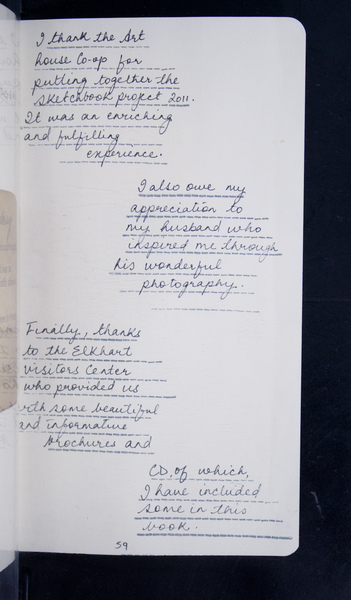 I thank the Art
house Co-op for
putting together the
sketchbook project 2011.
It was an enriching
and fulfilling
experience.
I also owe my
appreciation to
my husband who
inspired me through
his wonderful
photography.
Finally, thanks
to the Elkhart
visitors Center
who provided us
with some beautiful
and informative
brochures and
CD. of which,
I have included
some in this
book.
59